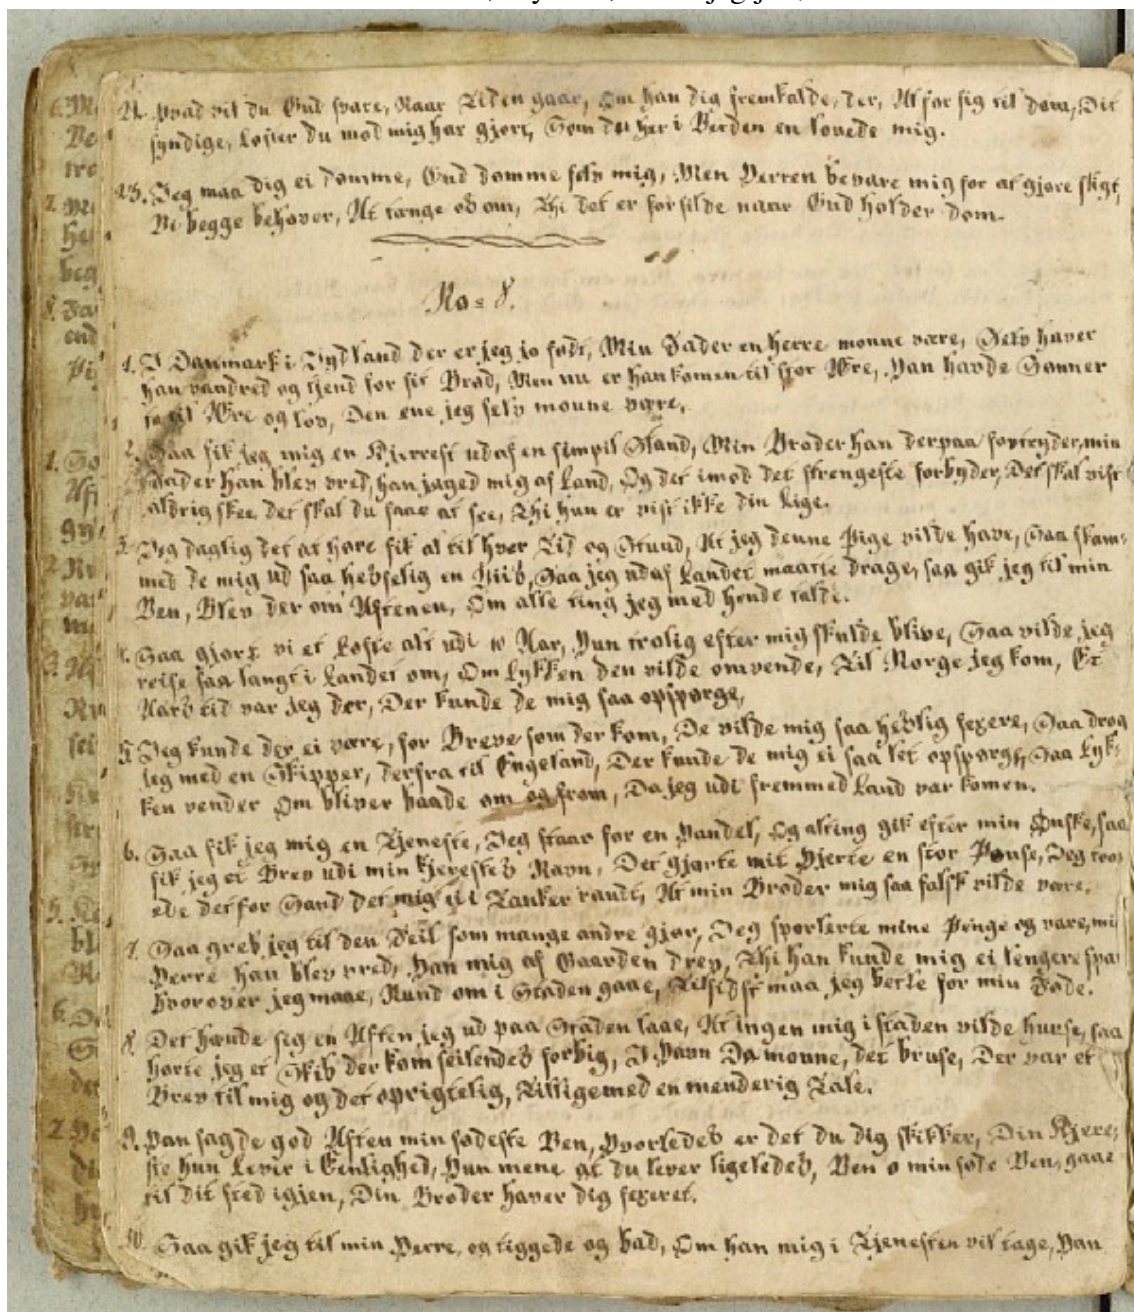 22. Hvad vil du Gud svare, Naar Tiden gaar, Om han dig fremkalde, der, At for sig til dom, Dit
syndige, Løfter du mod mig har gjort, Som du her i Verden en lovede mig.
23. Jeg maa dig ei dømme, Gud dømme selv mig, Men Herren bevare mig for at gjøre sligt,
Vi begge behøver, At tænge os om, Thi det er forsilde naar Gud holder dom.
No = 8.
1. I Danmark i Jydland der er jeg jo født, Min Fader en herre monne være, Selv haver
han vandred og tjend for sit Brød, Men nu er han komen til stor Ære, Han havde Sønner
to til Ære og lov, Den ene jeg selv monne være,
2. Saa fik jeg mig en Kjerrest ud af en simpil Stand, Min Broder han derpaa fortryder, min
Fader han blev vred, han jaged mig af Land, Og det imod det strengeste forbyder, Det skal vist
aldrig skee, det skal du faae at see, Thi hun er vist ikke din Lige.
3. Jeg daglig det at høre fik al til hver Tid og Stund, At jeg denne Pige vilde have, Saa skam-
med de mig ud saa hesselig en Niis, Saa jeg udaf Landet maatte drage, saa gik jeg til min
Ven, Blev der om Aftenen, Om alle ting jeg med hende talte.
4. Saa gjort vi et Løfte alt udi 10 Aar, Hun trolig efter mig skulde blive, Saa vilde jeg
reise saa langt i Landet om, Om Lykken den vilde omvende, Til Norge jeg kom, Et
Aars tid var jeg der, Der kunde de mig saa opspørge,
5. Jeg kunde der ei være, for Breve som der kom, De vilde mig saa heslig fexere, Saa drog
jeg med en Skipper, derfra til Engeland, Der kunde de mig ei saa let opspørge, Saa Lyk-
ken vender Om bliver baade om og from, Da jeg udi fremmed Land var komen.
6. Saa fik jeg mig en Tjeneste, Jeg staar for en Handel, Og alting gik efter min Ønske, saa
fik jeg et Brev udi min kjerestes Navn, Det gjorte mit Hjerte en stor Pause, Jeg tro-
ede det for Sand det mig i Tanker randt, At min Broder mig saa falsk vilde være.
7. Saa greb jeg til den Feil som mange andre gjør, Jeg sporlerte mine Penge og vare, mi
Herre han blev vred, Han mig af Gaarden drev, Thi han kunde mig ei lengere spa
Hvorover jeg maae, Rund om i Staden gaae, Tilsidst maa jeg betle for min Føde.
8. Det hænde sig en Aften jeg ud paa Staden laae, At ingen mig i staden vilde huuse, saa
hørte jeg et Skib der kom seilendes forbig, I Havn Da monne, det bruse, Der var et
Brev til mig og det oprigtelig, Tilligemed en menderig Tale.
9. Han sagde god Aften min sødeste Ven, Hvorledes er det du dig skikker, Din Kjere-
ste hun Levir i Eenlighed, Hun mene at du lever ligeledes, Ven o min søde Ven, gaae
til dit sted igjen, Din Broder haver dig fexeret.
10. Saa gik jeg til min Herre, og tiggede og bad, Om han mig i Tjenesten vil tage, Han